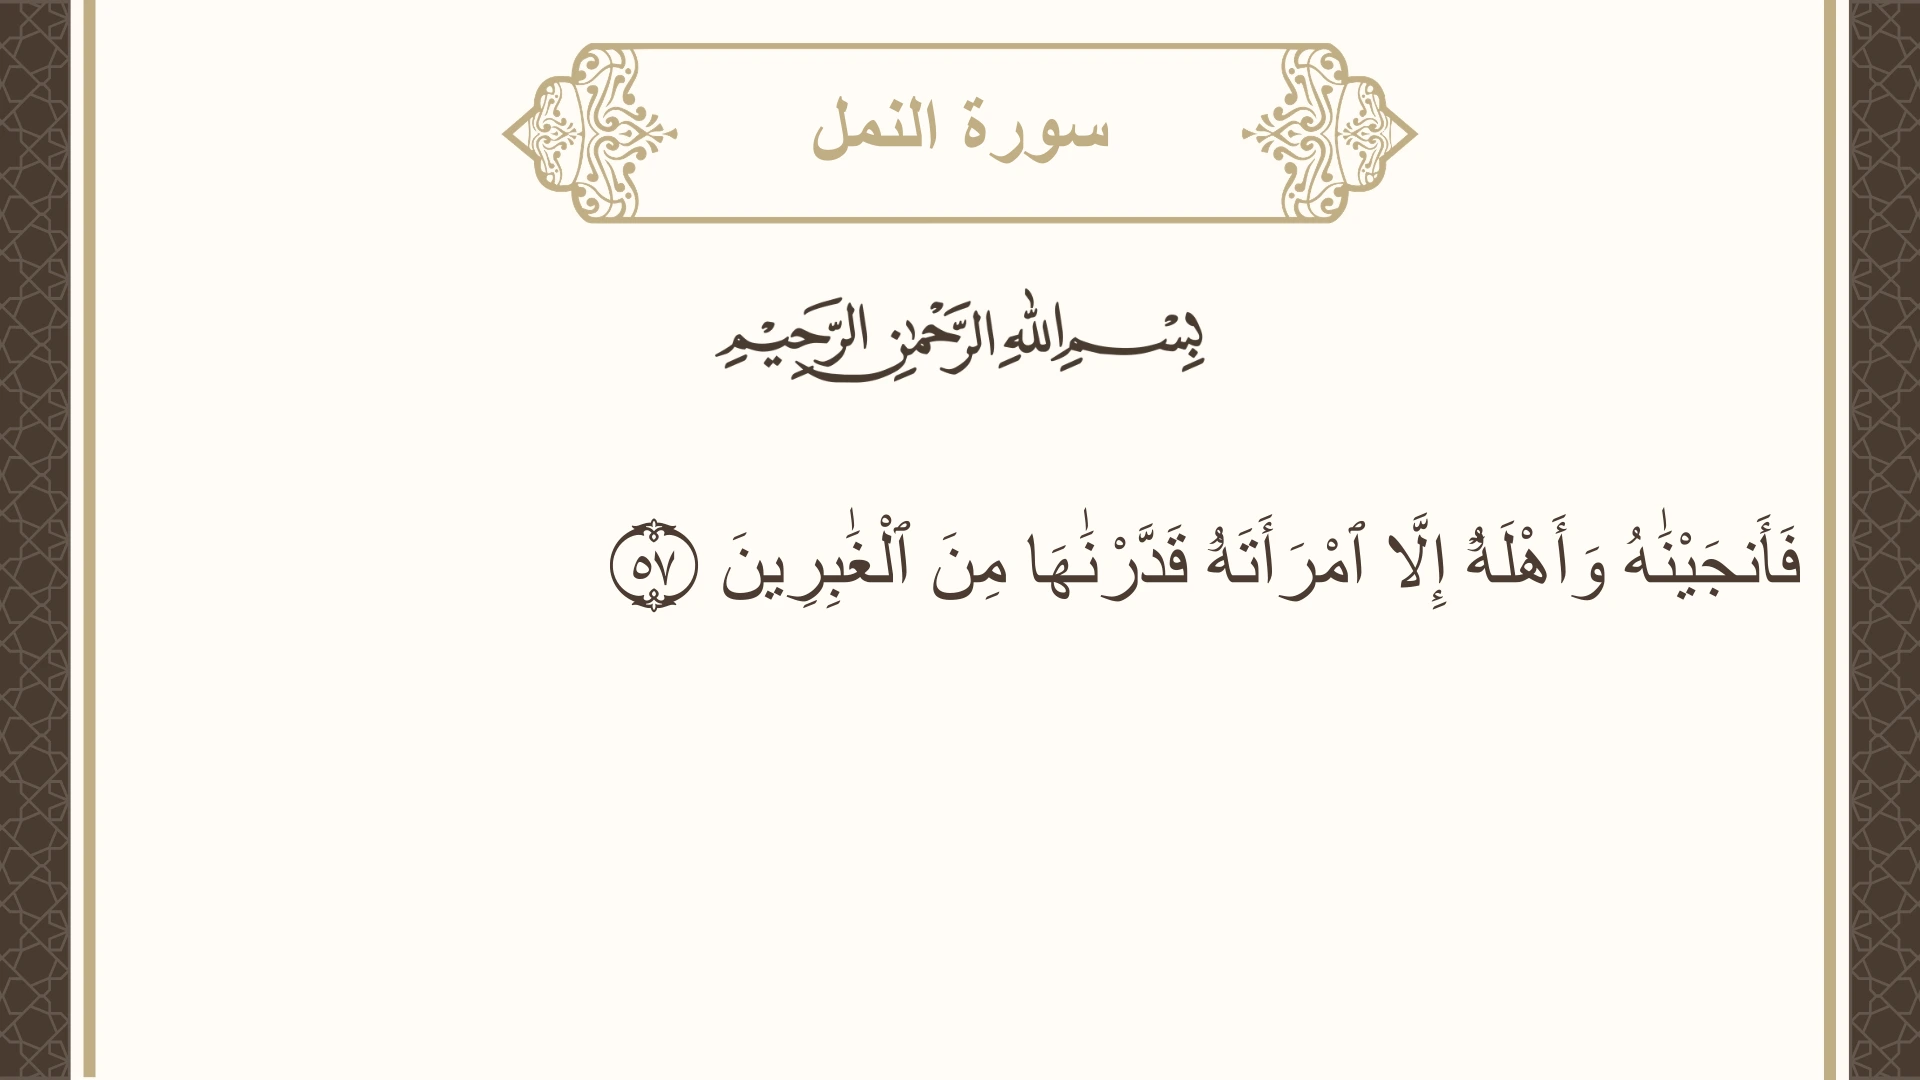 سورة النمل
بِسْمِ اللهِ الرَّحْمٰنِ الرَّحِيْمِ
فَأَنجَيْنَٰهُ وَأَهْلَهُۥٓ إِلَّا ٱمْرَأَتَهُۥ قَدَّرْنَٰهَا مِنَ ٱلْغَٰبِرِينَ ٥٧